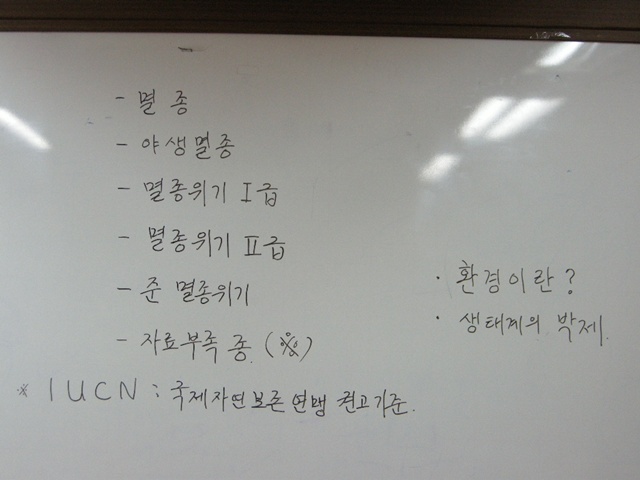 - 멸종
- 야생멸종
- 멸종위기 Ⅰ급
- 멸종위기 Ⅱ급
- 준 멸종위기
- 자료부족 종. (※)
※ IUCN : 국제자연보존연맹 권고기준.
· 환경이란?
· 생태계의 박제.